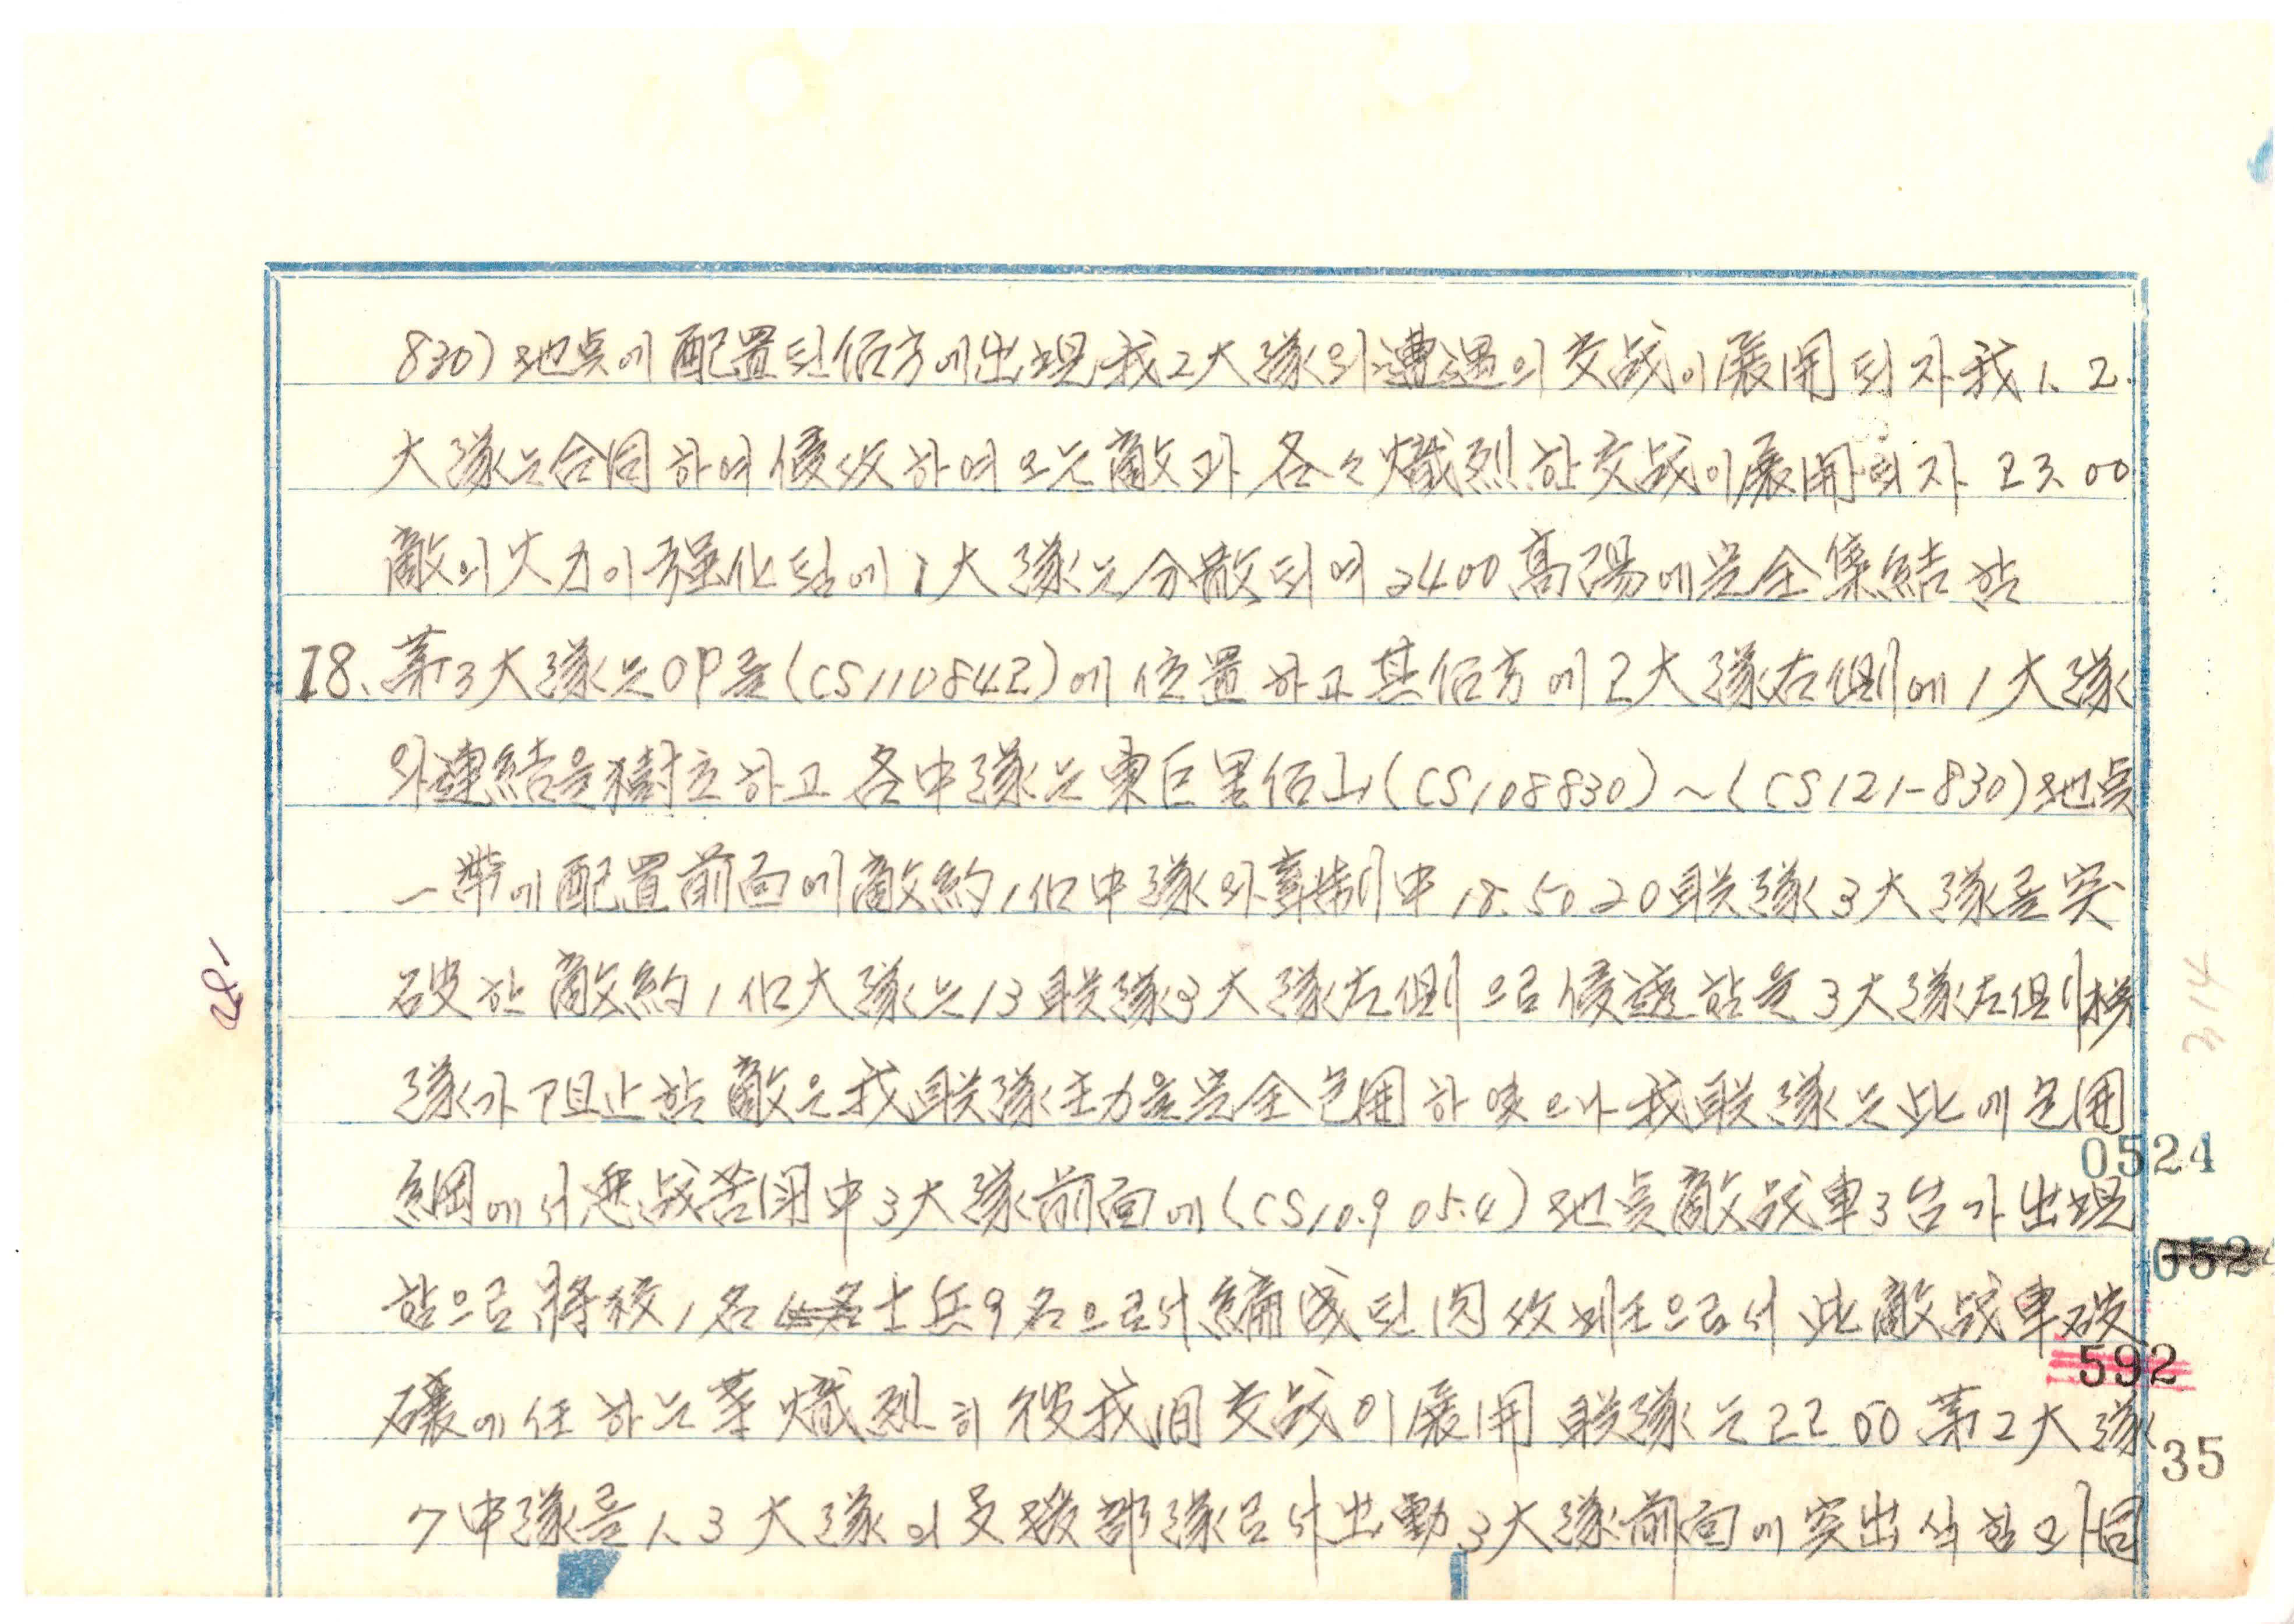 830)地点에 配置된 仴方에 出現 我2大隊와 遭遇의 交战이 展開되자 我 1. 2.
大隊는 合同하여 侵攻하여 오는 敵과 各々 熾烈한 交战이 展開되자 23.00
敵의 火力이 强化됨에 1大隊는 分散되여 2400 高陽에 完全集結함
18. 第3大隊는 OP를 (CS110842)에 位置하고 其 方에 2大隊 左側에 1大隊
와 連結을 樹立하고 各中隊는 東巨里 山(CS108830)~(CS121-830)地点
一帶에 配置 前面에 敵約 1個中隊와 牽制中 18.50 20联隊 3大隊를 突
破한 敵約 1個大隊는 13联隊 3大隊 左側으로 侵透함을 3大隊 左側
隊가 阻止함 敵은 我联隊主力을 完全包囲하였으나 我联隊는 此에 包囲
網에서 悪战苦闘中 3大隊 前面에 (CS10.9 05.4) 地点 敵战車 3台가 出現
함으로 將校 1名 士兵 9名으로서 編成된 肉攻班으로서 此 敵战車破
壞에 任하는 等 熾烈히 彼我间 交战이 展開 联隊는 22 00 第2大隊
7中隊를 1. 3 大隊의 支援部隊로서 出動 3大隊 前面에 突出식힘과 同
-28-
314
0524
0524
592
35